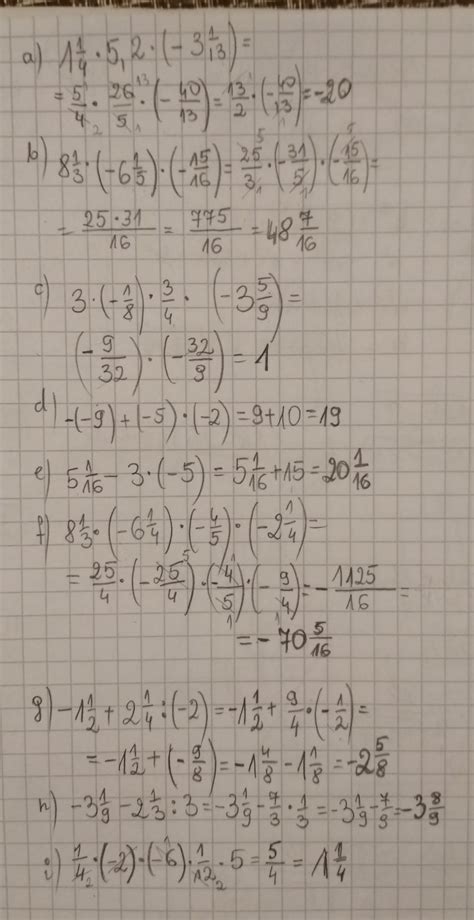 a) 1 1/4 · 5,2 · (-3 1/13) =
= 5/4 · 26/5 · (-40/13) = 13/2 · (-40/13) = -20
b) 8 1/3 · (-6 1/5) · (-15/16) = 25/3 · (-31/5) · (-15/16) =
= 25·31/16 = 775/16 = 48 7/16
c) 3 · (-1/8) · 3/4 · (-3 5/9) =
(-9/32) · (-32/9) = 1
d) -(-9) + (-5) · (-2) = 9 + 10 = 19
e) 5 1/16 - 3 · (-5) = 5 1/16 + 15 = 20 1/16
f) 8 1/3 · (-6 1/4) · (-4/5) · (-2 1/4) =
= 25/4 · (-25/4) · (-4/5) · (-9/4) = -1125/16 =
= -70 5/16
g) -1 1/2 + 2 1/4 : (-2) = -1 1/2 + 9/4 · (-1/2) =
= -1 1/2 + (-9/8) = -1 4/8 - 1 1/8 = -2 5/8
h) -3 1/9 - 2 1/3 : 3 = -3 1/9 - 7/3 · 1/3 = -3 1/9 - 7/9 = -3 8/9
i) 1/4 · (-2) · (-6) · 1/12 · 5 = 5/4 = 1 1/4